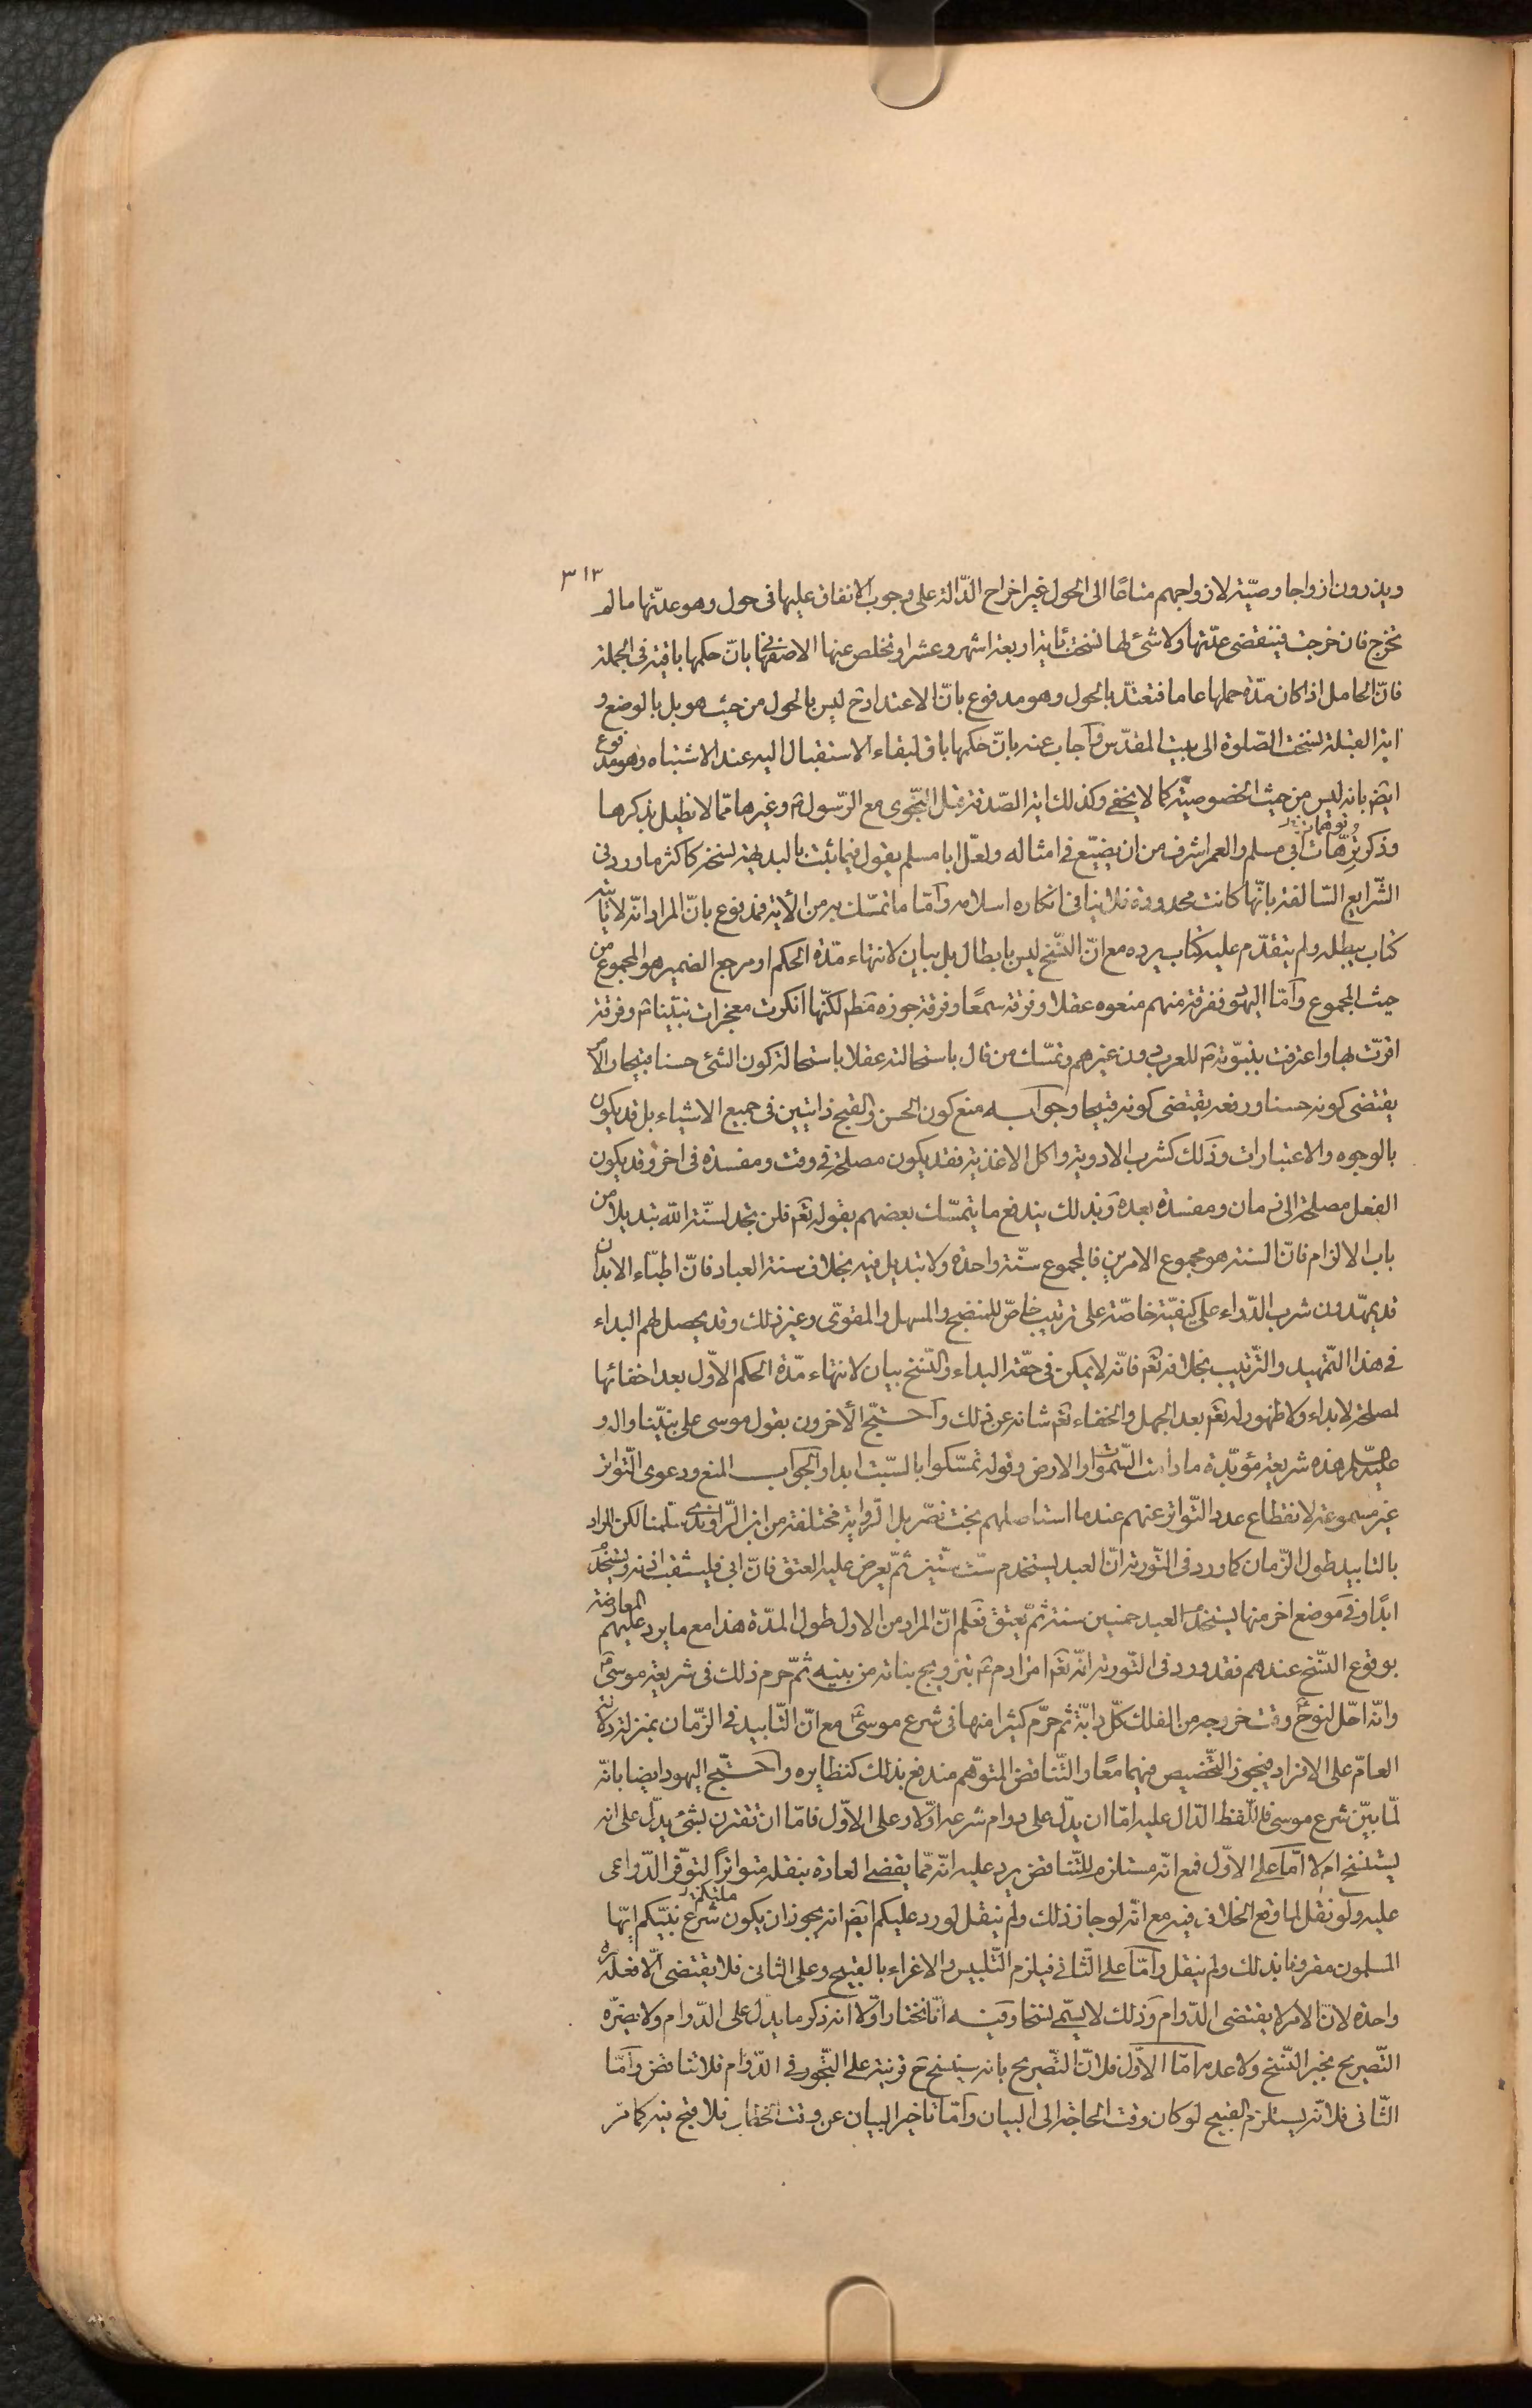 ٣١٣
ويذرون ازواجا وصيّة لازواجهم متاعًا الى الحول غير اخراج الدّالة على وجوب الانفاق عليها فى حول وهو عدّتها ما لم
تخرج فان خرجت فتنقضى عدّتها ولا شئ لها نسخت بآية اربعة اشهر وعشرا وتخلص عنها الاصفهانى بانّ حكمها باقية فى الجملة
فانّ الحامل اذا كان مدّة حملها عاما فتعتدّ بالحول وهو مدفوع بانّ الاعتداد ح ليس بالحول من حيث هو بل بالوضع و
اية القبلة نسخت الصّلوة الى بيت المقدّس واجاب عنه بانّ حكمها باق لبقاء الاستقبال اليه عند الاشتباه وهو مدفوع
ايض بانه ليس من حيث الخصوصيّة كما لا يخفى وكذلك اية الصّدقة قبل النّجوى مع الرّسول ص وغيرها ممّا لا نطيل بذكرها
وذكر ترّهات ابى مسلم والعمر اشرف من ان يضيّع فى امثاله ولعلّ ابا مسلم يقول فيما ثبت بالبديهة نسخه كاكثر ما ورد فى
الشّرايع السّالفة بانّها كانت محدودة فلا ينافى انكاره اسلامه وامّا ما تمسّك به من الآية فمدفوع بانّ المراد انّه لا يأتيه
كتاب يبطله ولم يتقدّم عليه كتاب يرده مع انّ النّسخ ليس بابطال بل بيان لانتهاء مدّة الحكم او مرجع الضمير هو المجموع من
حيث المجموع وامّا اليهود ففرقة منهم منعوه عقلا وفرقة سمعًا وفرقة جوزه مط لكنّها انكرت معجزات نبيّنا ص وفرقة
اقرّت بها واعترفت بنبوّته ص للعرب دون غيرهم وتمسّك من قال باستحالته عقلا باستحالة كون الشئ حسنا قبيحا والامر
يقتضى كونه حسنا ورفعه يقتضى كونه قبيحا وجوابه منع كون الحسن والقبح ذاتيين فى جميع الاشياء بل قد يكون
بالوجوه والاعتبارات وذلك كشرب الادوية واكل الاغذية فقد يكون مصلحة فى وقت ومفسدة فى اخر وقد يكون
الفعل مصلحة الى زمان ومفسدة بعده وبذلك يندفع ما يتمسّك بعضهم بقوله تعم فلن تجد لسنّة الله تبديلا من
باب الالزام فانّ السنته هو مجموع الامرين فالمجموع سنّة واحدة ولا تبديل فيه بخلاف سنة العباد فانّ اطبّاء الابدان
قد يمهّدون شرب الدّواء على كيفيّة خاصّة على ترتيب خاصّ للمنضج والمسهل والمقوّى وغير ذلك وقد يحصل لهم البداء
فى هذا التّمهيد والتّرتيب بخلافه تعم فانّه لا يمكن فى حقّه البداء والنّسخ بيان لانتهاء مدّة الحكم الاوّل بعد اخفائها
لمصلحة لا بداء ولا ظهور له تعم بعد الجهل والخفاء تعم شانه عن ذلك واحتجّ الآخرون بقول موسى على نبيّنا واله و
عليه السلم هذه شريعة مؤبّدة ما دامت السّموات والارض وقوله تمسّكوا بالسّبت ابدا والجواب المنع ودعوى التّواتر
غير مسموعة لانقطاع عدد التّواتر عنهم عند ما استاصلهم بخت نصّر بل الرّواية مختلقة من ابن الرّاوندى سلّمنا لكن المراد
بالتابيد طول الزّمان كما ورد فى التّورية انّ العبد يستخدم ستّ سنين ثمّ يعرض عليه العتق فانّ ابى فليثقب اذنه ويستخدم
ابدًا وفى موضع اخر منها يستخدم العبد خمسين سنة ثمّ يعتق فعلم انّ المراد من الاول طول المدّة هذا مع ما يرد عليهم المعارضة
بوقوع النّسخ عندهم فقد ورد فى التّورية انّه تعم امر ادم ع بتزويج بناته من بنيه ثمّ حرم ذلك فى شريعة موسى ع
وانّه احلّ لنوح ع وقت خروجه من الفلك كلّ دابّة ثم حرّم كثيرا منها فى شرع موسى ع مع انّ التّابيد فى الزّمان بمنزلة دلالة
العامّ على الافراد فيجوز التّخصيص فيهما معًا والتّناقض المتوهّم مندفع بذلك كنظايره واحتجّ اليهود ايضا بانّه
لمّا بيّن شرع موسى فاللّفظ الدّال عليه امّا ان يدلّ على دوام شرعه اوّلا وعلى الاوّل فامّا ان تقترن بشئ يدلّ على انه
يستنسخ ام لا امّا على الاوّل فمع انّه مستلزم للتّناقض يرد عليه انّه ممّا يقضى العادة بنقله متواترًا لتوفّر الدّواعى
عليه ولو نقل لما وقع الخلاف فيه مع انّه لو جاز ذلك ولم ينقل لورد عليكم ايض انه يجوز ان يكون شرع نبيّكم ايّها
المسلمون مقرونا بذلك ولم ينقل وامّا على الثّانى فيلزم التّلبيس والاغراء بالقبيح وعلى الثانى فلا يقتضى الّا فعله مرة
واحدة لانّ الامر لا يقتضى الدّوام وذلك لا يسمّى نسخا وفيه انّا نختار اوّلا انه ذكر ما يدلّ على الدّوام ولا يضرّه
التّصريح بخبر النّسخ ولا عدمه امّا الاوّل فلانّ التّصريح بانه سينسخ ح قرينة على التّجوز فى الدّوام فلا تناقض وامّا
الثّانى فلانّه يستلزم القبيح لو كان وقت الحاجة الى البيان وامّا تاخير البيان عن وقت الخطاب فلا قبح فيه كما مر